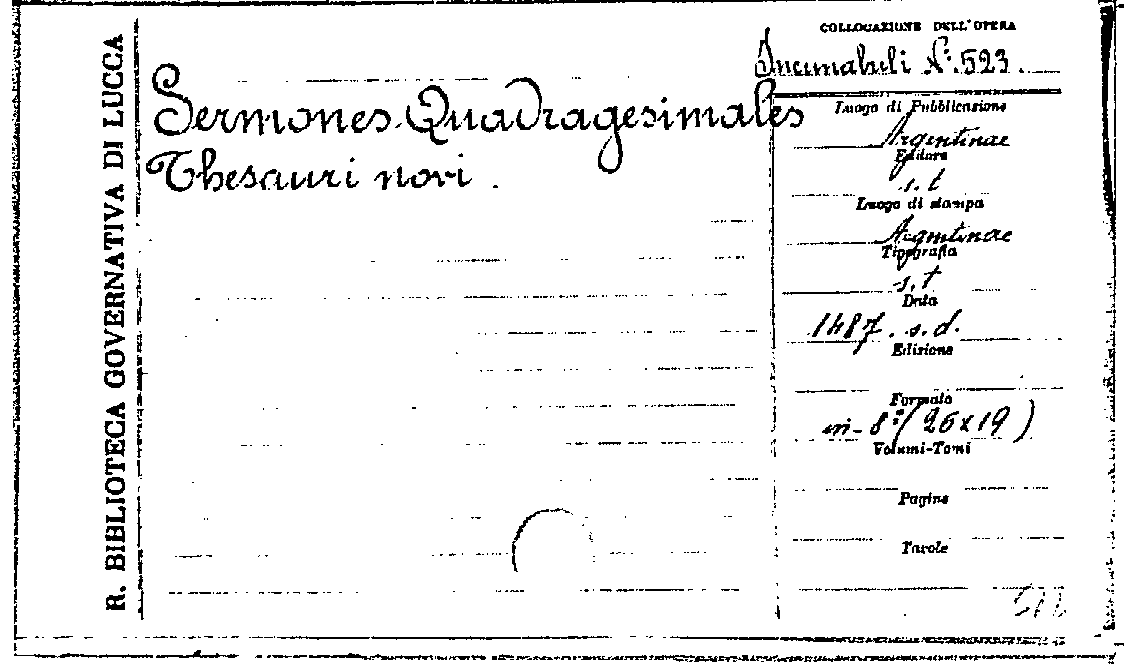 R. BIBLIOTECA GOVERNATIVA DI LUCCA
Sermones Quadragesimales
Thesauri novi.
COLLOCAZIONE DELL'OPERA
Incunabuli N.º 523.
Luogo di Pubblicazione
Argentinae
Editore
s. t
Luogo di stampa
Argentinae
Tipografia
s. t
Data
1487. s. d.
Edizione
Formato
in-8º (26x19)
Volumi-Tomi
Pagine
Tavole